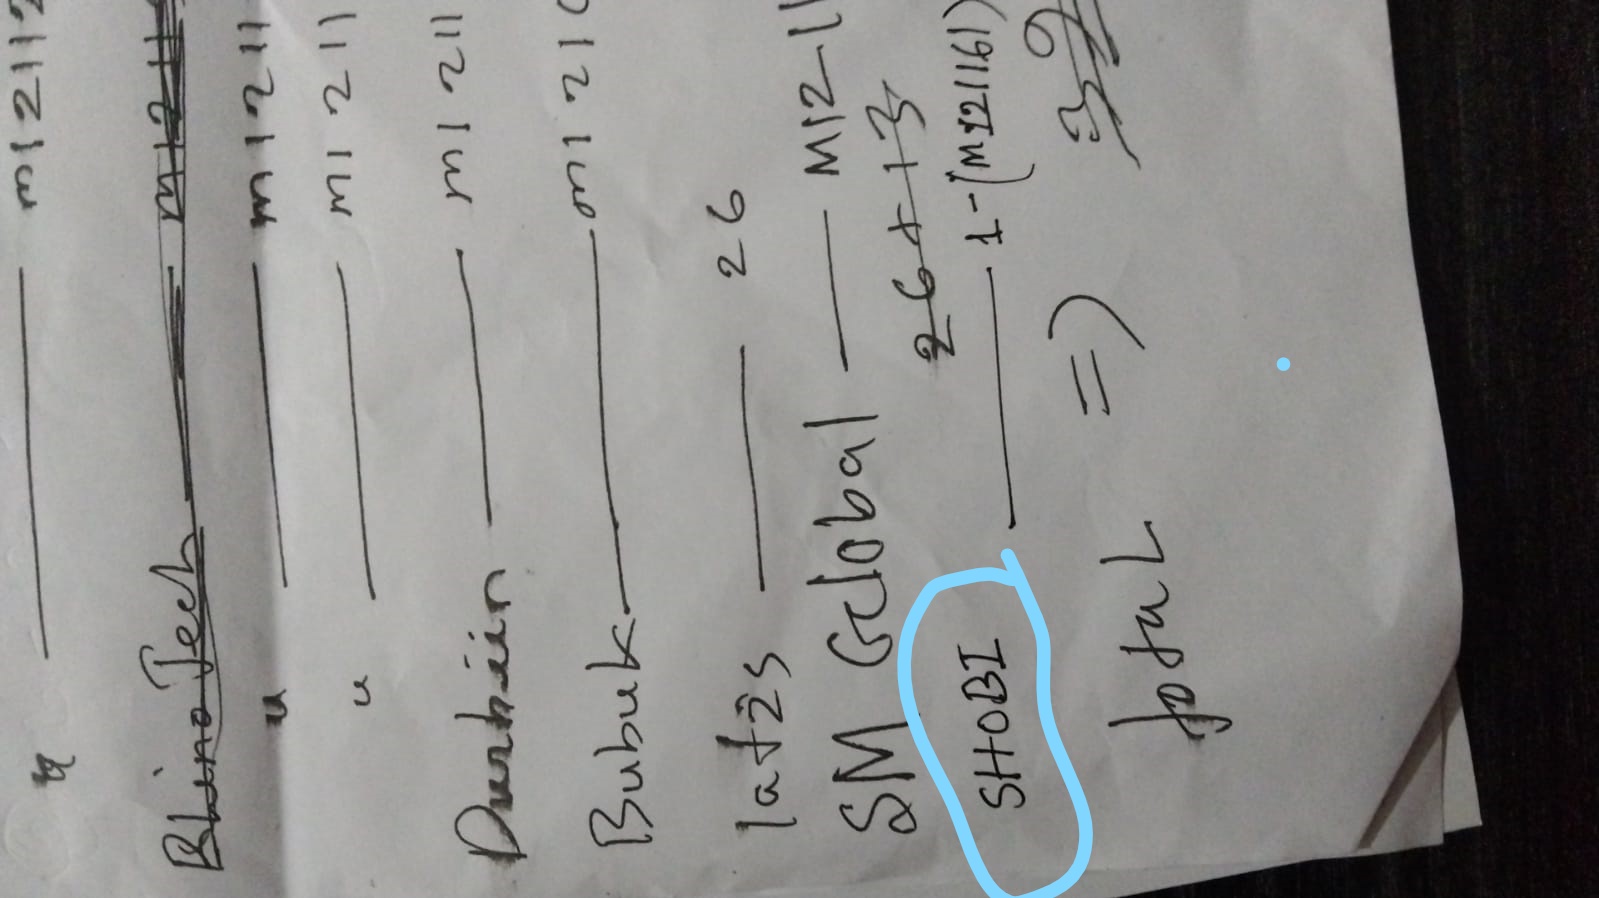 " — m12112
" — m1211
" — m1211
Durbin — m1211
Bubuk — m1210
latzs — 26
SM Global — M12-11
26+13
SHOBI — 1-(M121161)
total => 39